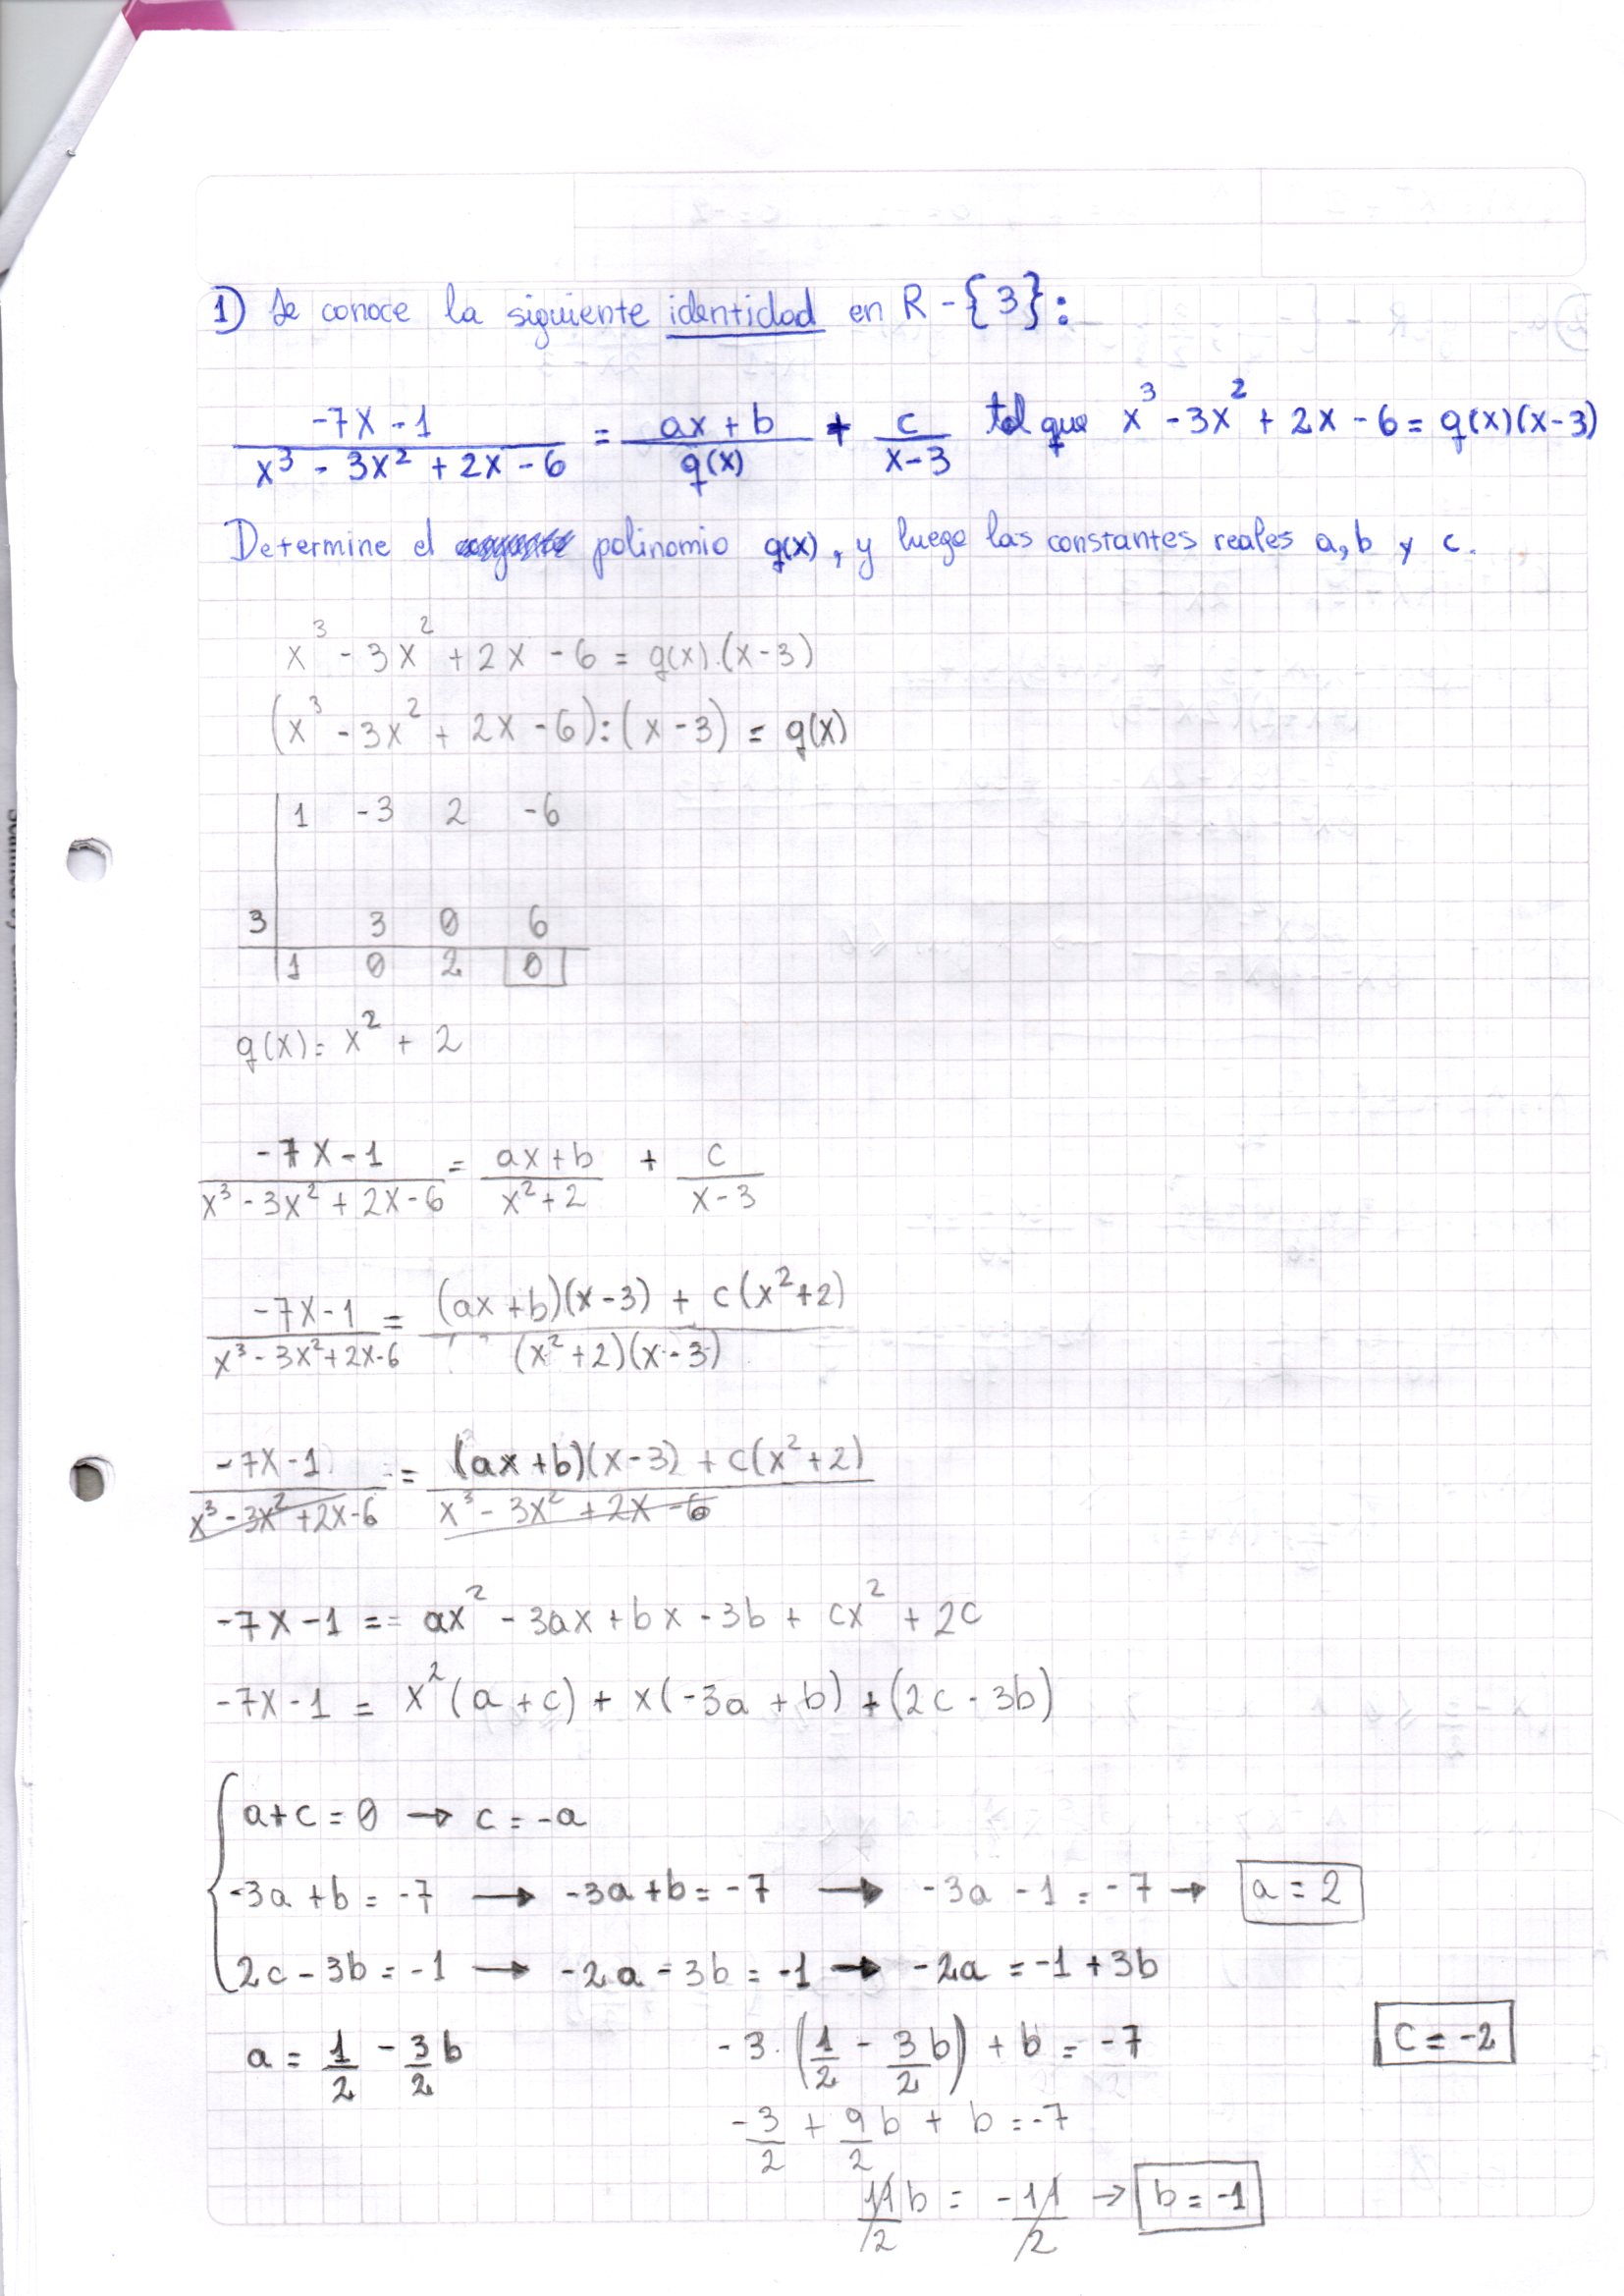 1) Se conoce la siguiente identidad en R - {3}:
(-7x - 1)/(x³ - 3x² + 2x - 6) = (ax + b)/q(x) + c/(x-3) tal que x³ - 3x² + 2x - 6 = q(x)(x-3)
Determine el polinomio q(x), y luego las constantes reales a, b y c.
x³ - 3x² + 2x - 6 = q(x).(x-3)
(x³ - 3x² + 2x - 6):(x - 3) = q(x)
1 -3 2 -6
3 3 0 6
1 0 2 0
q(x) = x² + 2
(-7x - 1)/(x³ - 3x² + 2x - 6) = (ax + b)/(x² + 2) + c/(x - 3)
(-7x - 1)/(x³ - 3x² + 2x - 6) = ((ax + b)(x - 3) + c(x² + 2))/((x² + 2)(x - 3))
(-7x - 1)/(x³ - 3x² + 2x - 6) = ((ax + b)(x - 3) + c(x² + 2))/(x³ - 3x² + 2x - 6)
-7x - 1 == ax² - 3ax + bx - 3b + cx² + 2c
-7x - 1 = x²(a + c) + x(-3a + b) + (2c - 3b)
a + c = 0 → c = -a
-3a + b = -7 → -3a + b = -7 → -3a - 1 = -7 → a = 2
2c - 3b = -1 → -2a - 3b = -1 → -2a = -1 + 3b
a = 1/2 - 3/2 b -3.(1/2 - 3/2 b) + b = -7 c = -2
-3/2 + 9/2 b + b = -7
11/2 b = -11/2 → b = -1